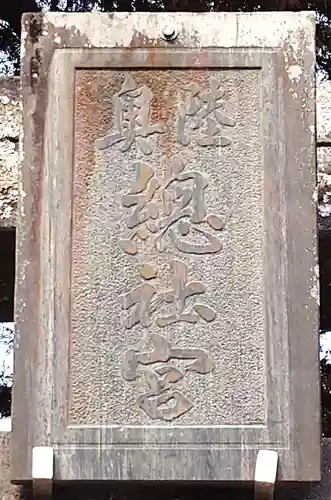 陸奥
総社宮